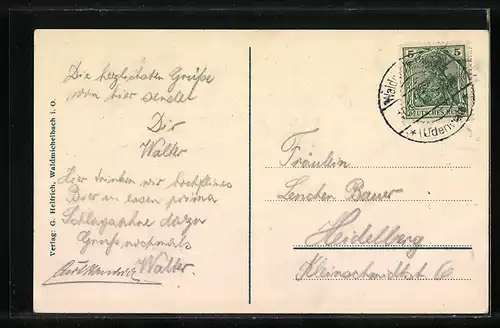 Die herzlichsten Grüße
von hier sendet
Dir
Walter
Hier trinken wir
Bier essen prima
Schlagsahne dazu
Gruß nochmals
Walter.
Verlag: G. Helfrich, Waldmichelbach i. O.
5 5
DEUTSCHES REICH
Wald
* (Odenwald)
Fräulein
Lenchen Bauer
Heidelberg
Kleinschmidtst 6